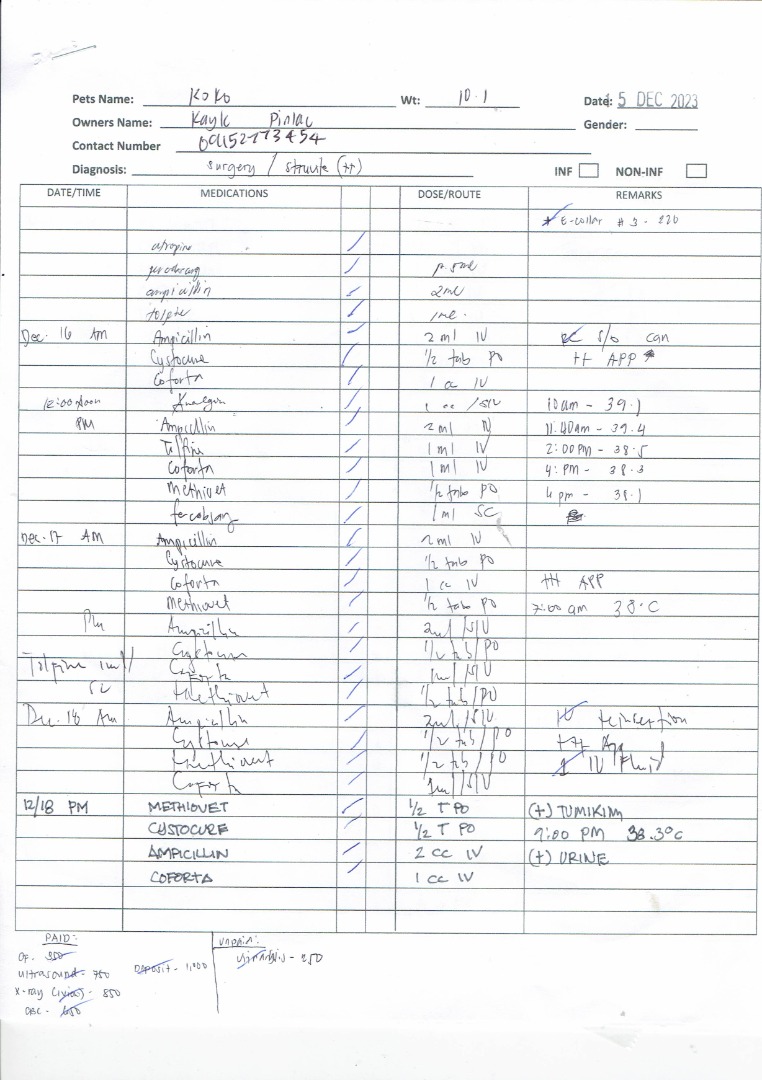 Pets Name: KOKO Wt: 10.1 Date: 15 DEC 2023
Owners Name: Kayle Pinlac Gender:
Contact Number 09152773454
Diagnosis: surgery / struvite (++) INF NON-INF
DATE/TIME MEDICATIONS DOSE/ROUTE REMARKS
* E-collar # 3 - 220
atropine
0.5ml
ampicillin 2ml
1ml
Dec. 16 AM Ampicillin 2 ml IV s/o can
Cystocure 1/2 tab PO ++ APP
Coforta 1 cc IV
12:00 noon 1 cc /SIV 10am - 39.1
PM Ampicillin 2 ml IV 11:40am - 39.4
Tolfine 1 ml IV 2:00 PM - 38.5
Coforta 1 ml IV 4: PM - 38.3
Methiovet 1/2 tab PO 4 pm - 38.1
fercobsang 1 ml SC
Dec. 17 AM Ampicillin 2 ml IV
Cystocure 1/2 tab PO
Coforta 1 cc IV +++ APP
Methiovet 1/2 tab PO 7:00 am 38°C
PM Ampicillin 2ml /SIV
Cystocure 1/2 tab/PO
Tolfine 1ml/ Coforta 1ml /SIV
Methiovet 1/2 tab/PO
Dec. 18 Am Ampicillin 2ml /SIV IV reinsertion
Cystocure 1/2 tab/PO +++ App
Methiovet 1/2 tab/PO 1 IV Fluid
Coforta 1ml/SIV
12/18 PM METHIOVET 1/2 T PO (+) TUMIKIM
CYSTOCURE 1/2 T PO 9:00 PM 38.3°C
AMPICILLIN 2 cc IV (+) URINE
COFORTA 1 cc IV
PAID: UNPAID:
CF. 350 Urinalysis - 250
Ultrasound - 750 Deposit - 1,000
X-ray - 850
CBC - 650